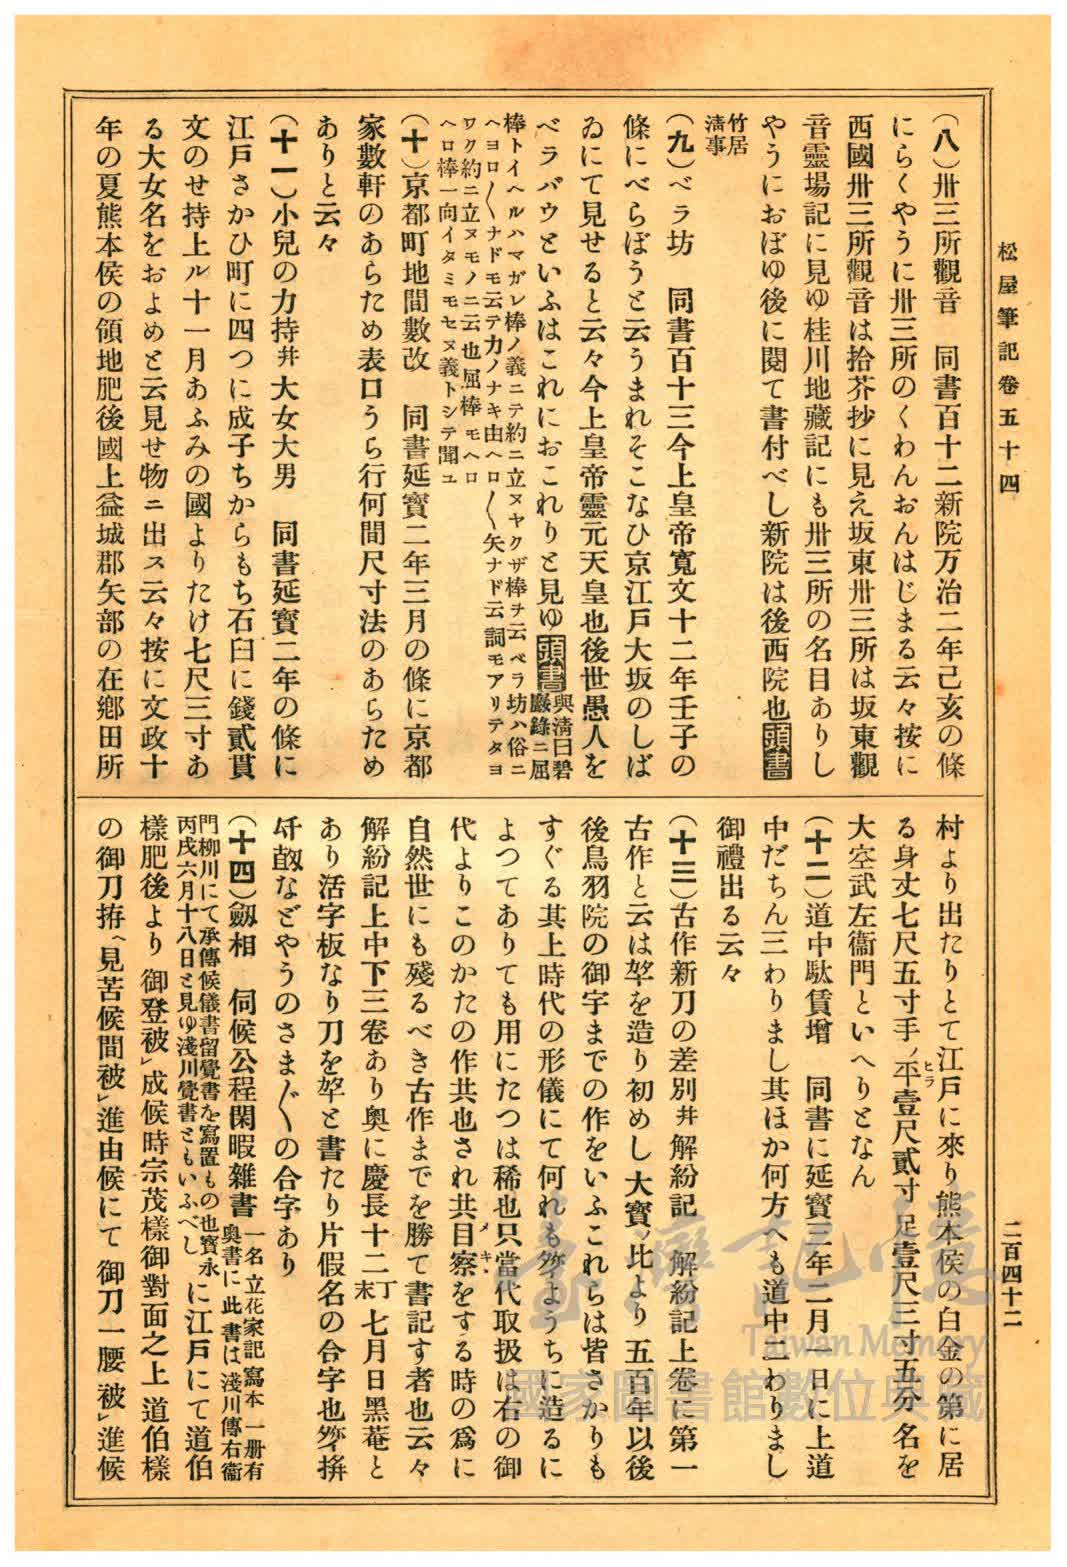 松屋筆記卷五十四
(八)卅三所觀音　同書百十二新院万治二年己亥の條
にらくやうに卅三所のくわんおんはじまる云々按に
西國卅三所觀音は拾芥抄に見え坂東卅三所は坂東觀
音靈場記に見ゆ桂川地藏記にも卅三所の名目ありし
やうにおぼゆ後に閱て書付べし新院は後西院也頭書
竹居
清事
(九)ベラ坊　同書百十三今上皇帝寬文十二年壬子の
條にべらぼうと云うまれそこなひ京江戸大坂のしば
ゐにて見せると云々今上皇帝靈元天皇也後世愚人を
ベラバウといふはこれにおこれりと見ゆ頭書與淸曰碧
巖錄ニ屈
棒トイヘルハマガレ棒ノ義ニテ約ニ立ヌヤクザ棒ヲ云ベラ坊ハ俗ニ
ヘヨロ〳〵ナドモ云テ力ノナキ由ヘロ〳〵矢ナド云詞モアリテタヨ
ワク約ニ立ヌモノニ云也屈棒モヘロ
ヘロ棒一向イタミモセヌ義トシテ聞ユ
(十)京都町地間數改　同書延寶二年三月の條に京都
家數軒のあらため表口うら行何間尺寸法のあらため
ありと云々
(十一)小兒の力持幷大女大男　同書延寶二年の條に
江戸さかひ町に四つに成子ちからもち石臼に錢貳貫
文のせ持上ル十一月あふみの國よりたけ七尺三寸あ
る大女名をおよめと云見せ物ニ出ス云々按に文政十
年の夏熊本侯の領地肥後國上益城郡矢部の在鄕田所
村より出たりとて江戸に來り熊本侯の白金の第に居
る身丈七尺五寸手ノ平ヒラ壹尺貳寸足壹尺三寸五分名を
大空武左衞門といへりとなん
(十二)道中駄賃增　同書に延寶三年二月一日に上道
中だちん三わりまし其ほか何方へも道中二わりまし
御禮出る云々
(十三)古作新刀の差別幷解紛記　解紛記上卷に第一
古作と云は㘴を造り初めし大寶ノ比より五百年以後
後鳥羽院の御宇までの作をいふこれらは皆さかりも
すぐる其上時代の形儀にて何れも ようちに造るに
よつてありても用にたつは稀也只當代取扱は右の御
代よりこのかたの作共也され共目メ察キヽをする時の爲に
自然世にも殘るべき古作までを勝て書記す者也云々
解紛記上中下三卷あり奧に慶長十二丁未七月日黑菴と
あり活字板なり刀を と書たり片假名の合字也 
 などやうのさま〴〵の合字あり
(十四)劔相　伺候公程閑暇雜書一名立花家記寫本一册有
奧書に此書は淺川傳右衞
門柳川にて承傳候儀書留覺書を寫置もの也寶永
丙戌六月十八日と見ゆ淺川覺書ともいふべしに江戸にて道伯
樣肥後より御登被レ成候時宗茂樣御對面之上道伯樣
の御刀拵ヘ見苦候間被レ進由候にて御刀一腰被レ進候
二百四十二
臺灣記憶
Taiwan Memory
國家圖書館數位典藏